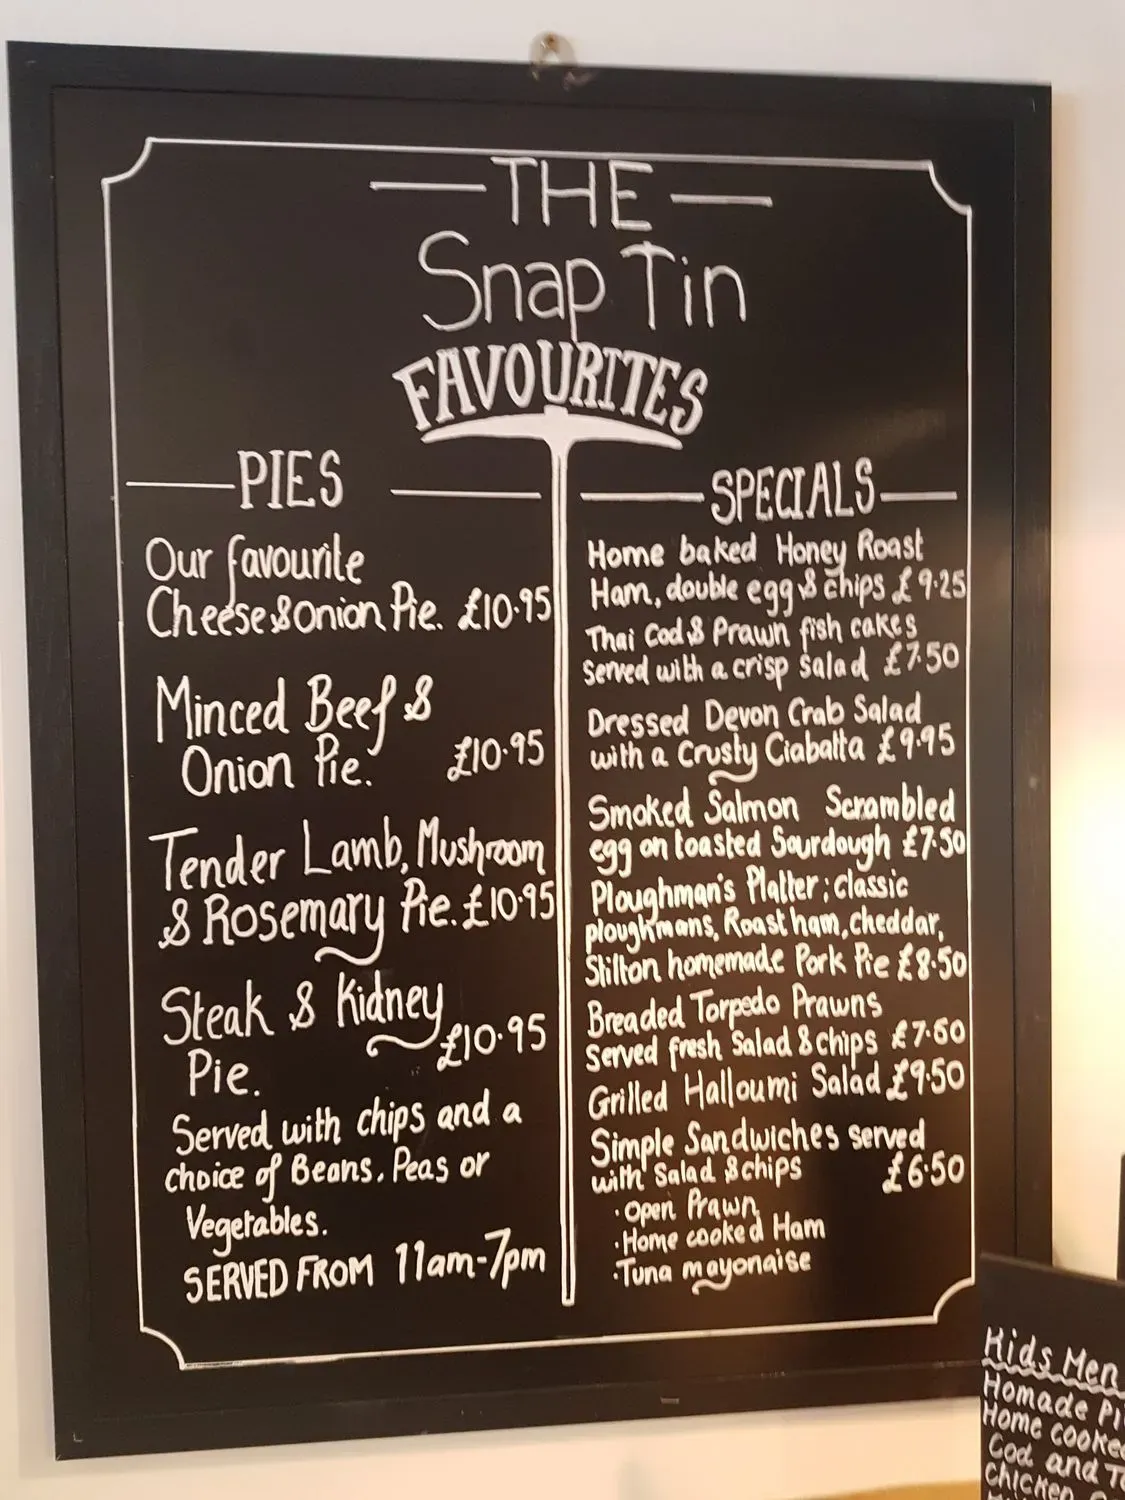 THE
Snap Tin
FAVOURITES
PIES
Our favourite
Cheese & Onion Pie. £10.95
Minced Beef &
Onion Pie. £10.95
Tender Lamb, Mushroom
& Rosemary Pie. £10.95
Steak & Kidney
Pie. £10.95
Served with chips and a
choice of Beans. Peas or
Vegetables.
SERVED FROM 11am-7pm
SPECIALS
Home baked Honey Roast
Ham, double egg & chips £9.25
Thai Cod & Prawn fish cakes
Served with a crisp salad £7.50
Dressed Devon Crab Salad
with a Crusty Ciabatta £9.95
Smoked Salmon Scrambled
egg on toasted Sourdough £7.50
Ploughman's Platter; classic
ploughmans, Roast ham, cheddar,
Stilton homemade Pork Pie £8.50
Breaded Torpedo Prawns
Served fresh Salad & chips
Grilled Halloumi Salad £9.50
Simple Sandwiches served
with Salad & chips £6.50
• Open Prawn
• Home cooked Ham
• Tuna mayonaise
Kids Men
Homade
Home cooked
Cod and
Chicken